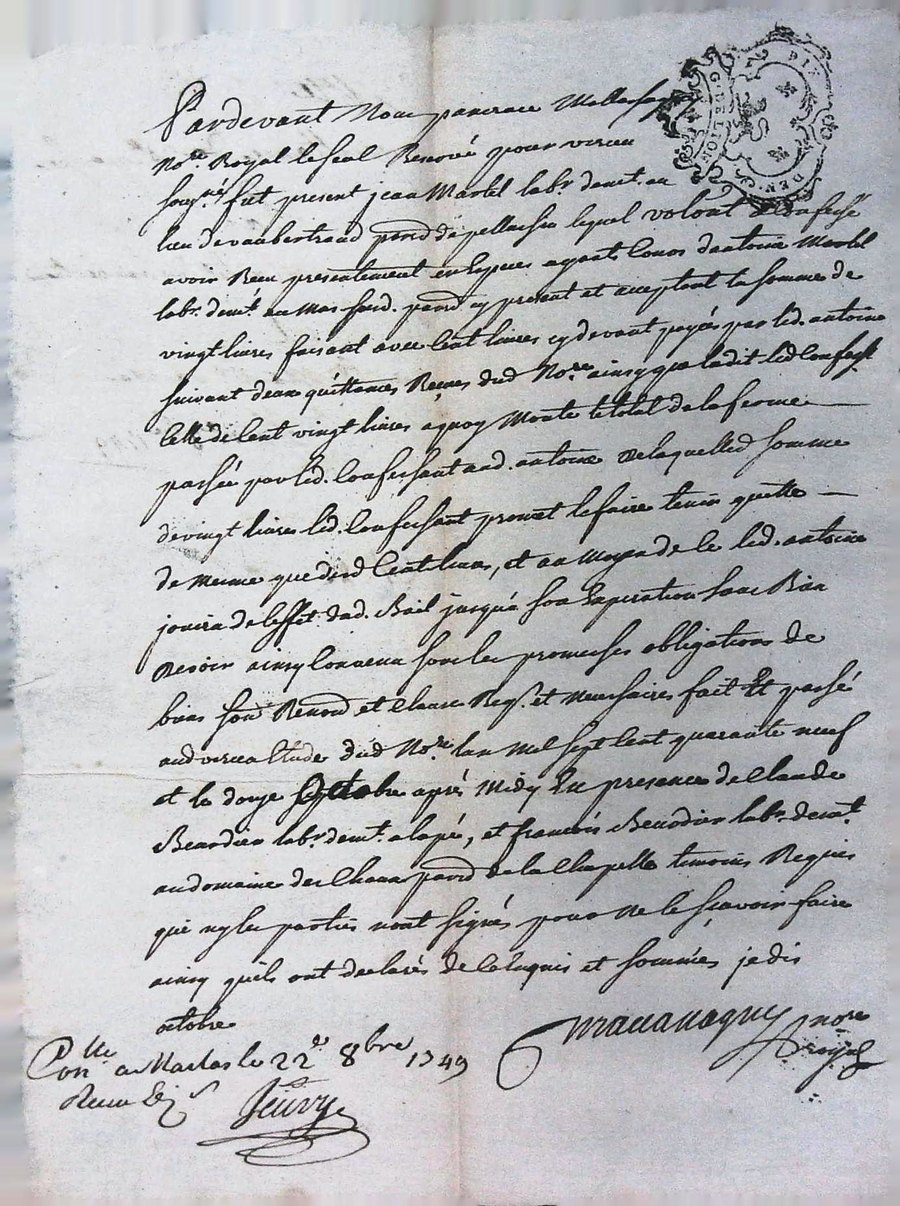 Pardevant Nous
No.re Royal le seul Renové pour vireu
soug.né fut present jean Martel lab.r demt. au
lieu de vaubertrand parr. de pellussin lequel volont. a Confessé
avoir Receu presentement en Especes ayants Cours dantoine Martel
lab.r demt. au Mas parr. cy present et acceptant la somme de
vingt livres faisant avec Cent livres cy devant payés par led. antoine
suivant deux quittances Receues dud No.re ainsy que la dit led Confess.t
Celle de Cent vingt livres a quoy Monte le total de la ferme
passée par led. Confessant aud. antoine de laquelled somme
de vingt livres led. Confessant promet le faire tenir quitte
de meme que desd Cent livres, et au Moyen de ce led. antoine
jouira de leffet dud. Bail jusqua son Expiration sans Rien
ainsy Convenu sous les promesses obligations de
biens Renond et Clauses Req.s et necessaires fait Et passé
aud vireu Etude dud No.re lan Mil sept Cent quarante neuf
et le douze après Midy En presence de Claude
Beaudier lab.r demt. a lapé, et françois Benodier lab.r demt.
au domaine de Chaux parr. de la Chapelle temoins Requis
qui ny les parties nont signés pour ne le sçavoir faire
ainsy quils ont declarés de Ce Enquis et sommés je dis
octobre
no.re
royal
Con.lle a Marlas le 22.e 8bre 1749
Receu